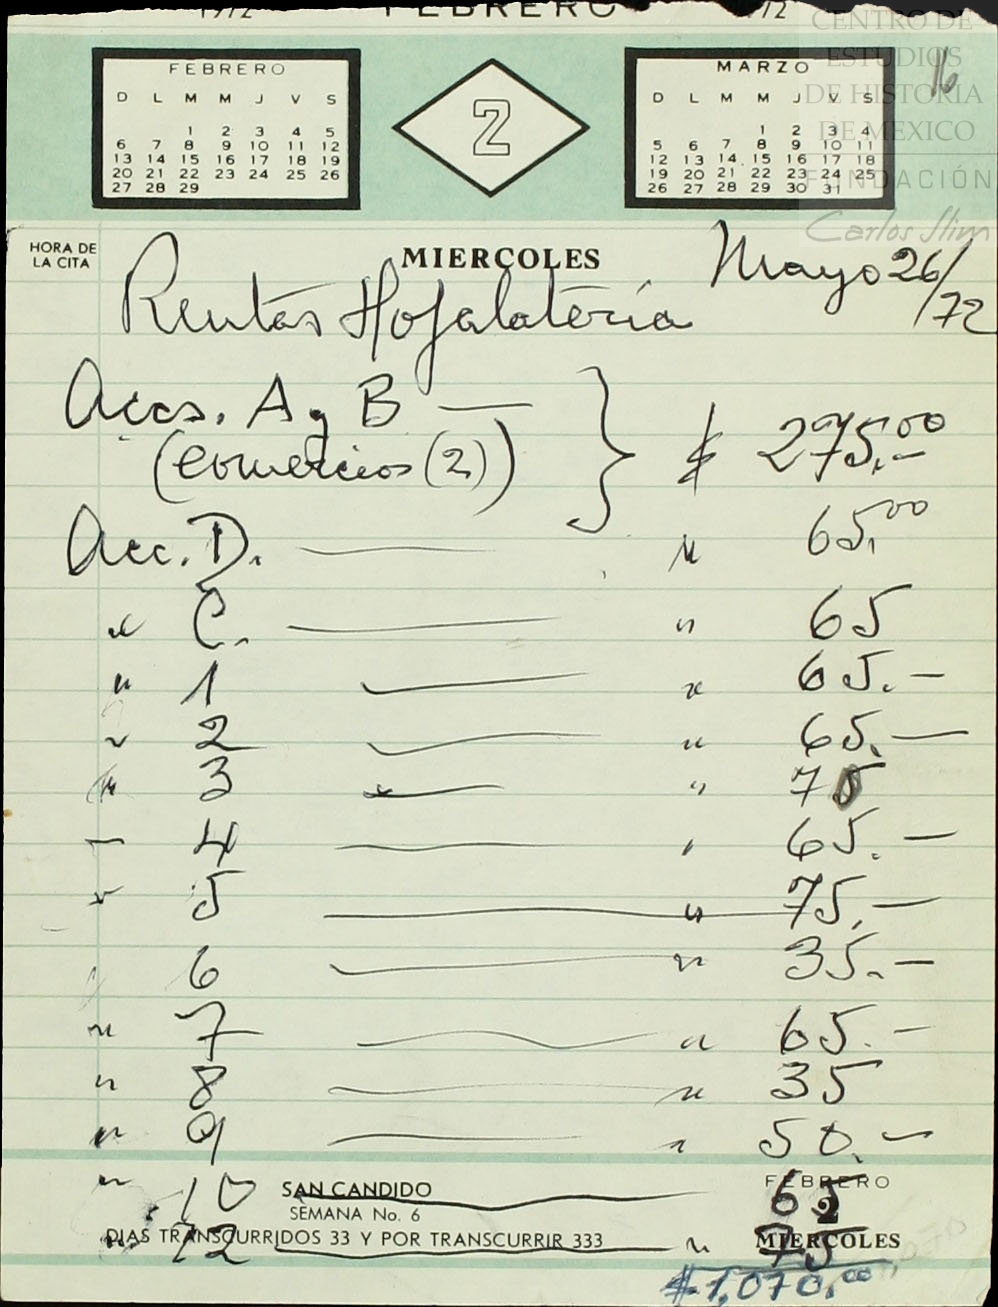 1972 FEBRERO 1972
CENTRO DE
ESTUDIOS
DE HISTORIA
DE MEXICO
FUNDACIÓN
Carlos Slim
16
FEBRERO
D L M M J V S
1 2 3 4 5
6 7 8 9 10 11 12
13 14 15 16 17 18 19
20 21 22 23 24 25 26
27 28 29
2
MARZO
D L M M J V S
1 2 3 4
5 6 7 8 9 10 11
12 13 14 15 16 17 18
19 20 21 22 23 24 25
26 27 28 29 30 31
HORA DE
LA CITA
MIERCOLES
Mayo 26/72
Rentas Hojalatería
Accs. A y B —
(comercios (2)) } $ 275.00
Acc. D. — " 65.00
" C. — " 65
" 1 — " 65.—
" 2 — " 65.—
" 3 — " 75
" 4 — " 65.—
" 5 — " 75.—
" 6 — " 35.—
" 7 — " 65.—
" 8 — " 35
" 9 — " 50.—
" 10 — 65
" 12 — " 75
$1,070.00
SAN CANDIDO
SEMANA No. 6
DIAS TRANSCURRIDOS 33 Y POR TRANSCURRIR 333
FEBRERO
2
MIERCOLES